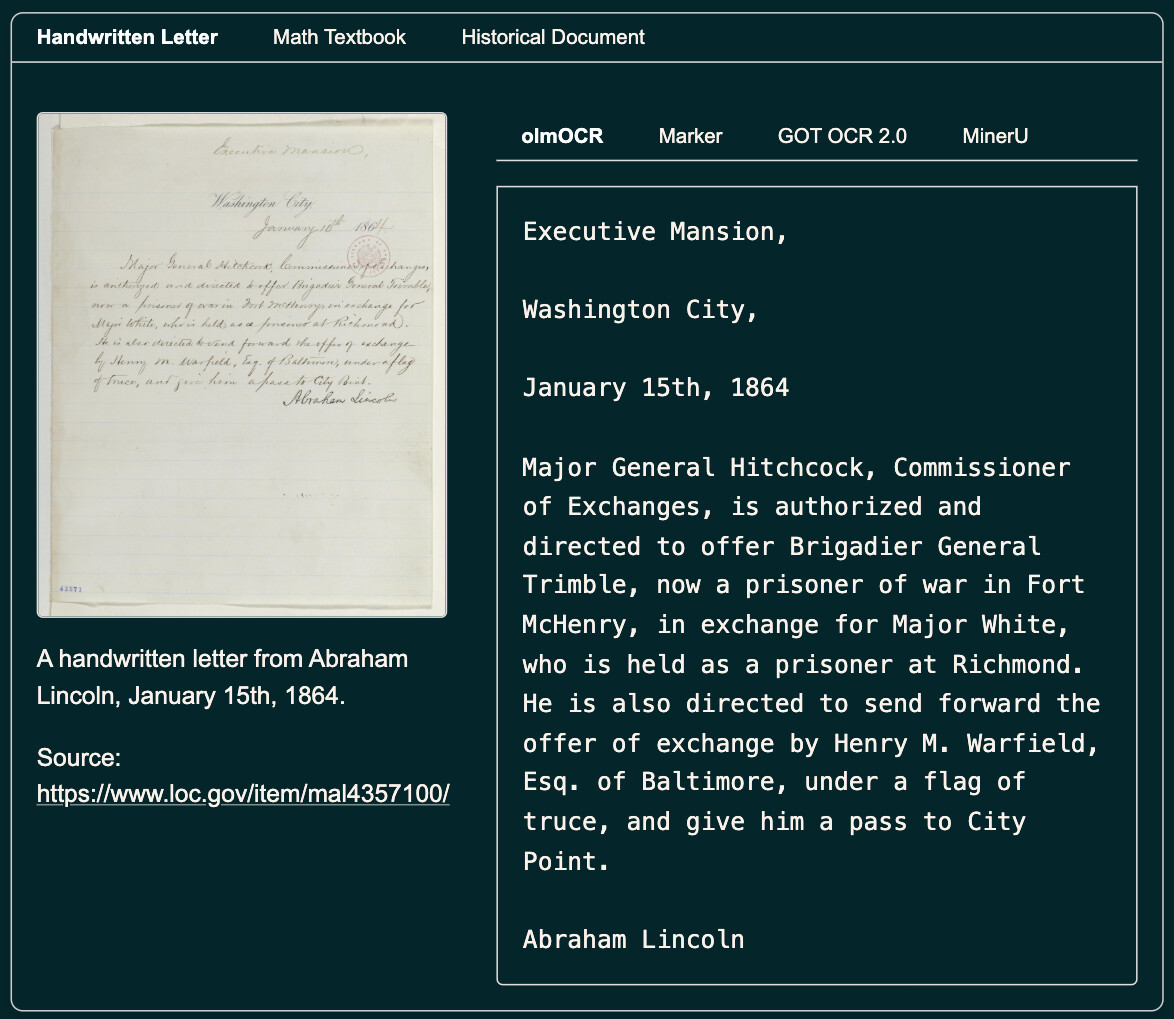 Handwritten Letter
Math Textbook
Historical Document
Executive Mansion,
Washington City,
January 15th 1864
Major General Hitchcock, Commissioner of Exchanges,
is authorized and directed to offer Brigadier General Trimble,
now a prisoner of war in Fort McHenry, in exchange for
Major White, who is held as a prisoner at Richmond.
He is also directed to send forward the offer of exchange
by Henry M. Warfield, Esq. of Baltimore, under a flag
of truce, and give him a pass to City Point.
Abraham Lincoln
43571
A handwritten letter from Abraham
Lincoln, January 15th, 1864.
Source:
https://www.loc.gov/item/mal4357100/
olmOCR
Marker
GOT OCR 2.0
MinerU
Executive Mansion,
Washington City,
January 15th, 1864
Major General Hitchcock, Commissioner
of Exchanges, is authorized and
directed to offer Brigadier General
Trimble, now a prisoner of war in Fort
McHenry, in exchange for Major White,
who is held as a prisoner at Richmond.
He is also directed to send forward the
offer of exchange by Henry M. Warfield,
Esq. of Baltimore, under a flag of
truce, and give him a pass to City
Point.
Abraham Lincoln